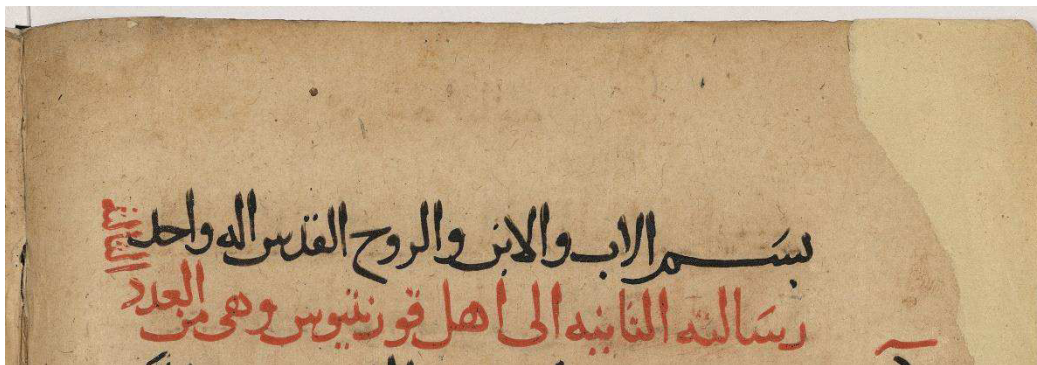 بسم الاب والابن والروح القدس اله واحد
رسالته الثانيه الى اهل قورنتيوس وهى من العدد
الثالثة